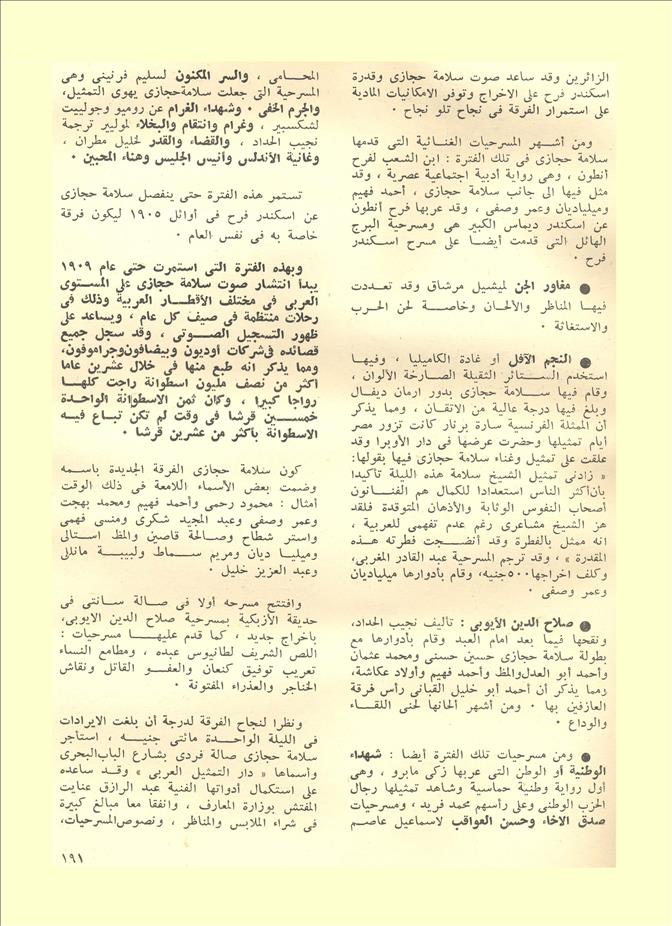 الزائرين وقد ساعد صوت سلامة حجازى وقدرة
اسكندر فرح على الاخراج وتوفر الامكانيات المادية
على استمرار الفرقة فى نجاح تلو نجاح .
ومن أشهر المسرحيات الغنائية التى قدمها
سلامة حجازى فى تلك الفترة : ابن الشعب لفرح
أنطون ، وهى رواية أدبية اجتماعية عصرية ، وقد
مثل فيها الى جانب سلامة حجازى ، أحمد فهيم
وميلياديان وعمر وصفى ، وقد عربها فرح أنطون
عن اسكندر ديماس الكبير هى ومسرحية البرج
الهائل التى قدمت أيضا على مسرح اسكندر
فرح .
● مغاور الجن لميشيل مرشاق وقد تعددت
فيها المناظر والألحان وخاصة لحن الحرب
والاستغاثة .
● النجم الآفل أو غادة الكاميليا ، وفيها
استخدم الستائر الثقيلة الصارخة الألوان ،
وقام فيها سلامة حجازى بدور ارمان ديفال
وبلغ فيها درجة عالية من الاتقان ، ومما يذكر
أن الممثلة الفرنسية سارة برنار كانت تزور مصر
أيام تمثيلها وحضرت عرضها فى دار الأوبرا وقد
علقت على تمثيل وغناء سلامة حجازى فيها بقولها:
« زادنى تمثيل الشيخ سلامة هذه الليلة تأكيدا
بأن أكثر الناس استعدادا للكمال هم الفنانون
أصحاب النفوس الوثابة والأذهان المتوقدة فلقد
هز الشيخ مشاعرى رغم عدم تفهمى للعربية ،
انه ممثل بالفطرة وقد أنضجت فطرته هذه
المقدرة » ، وقد ترجم المسرحية عبد القادر المغربى،
وكلف اخراجها ٥٠٠ جنيه، وقام بأدوارها ميلياديان
وعمر وصفى .
● صلاح الدين الأيوبى : تأليف نجيب الحداد،
ونقحها فيما بعد امام العبد وقام بأدوارها مع
بطولة سلامة حجازى حسين حسنى ومحمد عثمان
وأحمد أبو العدل والمظ وأحمد فهيم وأولاد عكاشة،
رمما يذكر أن أحمد أبو خليل القبانى رأس فرقة
العازفين بها . ومن أشهر ألحانها لحنى اللقاء
والوداع .
● ومن مسرحيات تلك الفترة أيضا : شهداء
الوطنية أو الوطن التى عربها زكى مابرو ، وهى
أول رواية وطنية حماسية وشاهد تمثيلها رجال
الحزب الوطنى وعلى رأسهم محمد فريد ، ومسرحيات
صدق الاخاء وحسن العواقب لاسماعيل عاصم
المحامى ، والسر المكنون لسليم فرنينى وهى
المسرحية التى جعلت سلامة حجازى يهوى التمثيل،
والجرم الخفى . وشهداء الغرام عن روميو وجولييت
لشكسبير ، وغرام وانتقام والبخلاء لموليير ترجمة
نجيب الحداد ، والقضاء والقدر لخليل مطران ،
وغانية الأندلس وأنيس الجليس وهناء المحبين .
تستمر هذه الفترة حتى ينفصل سلامة حجازى
عن اسكندر فرح فى أوائل ١٩٠٥ ليكون فرقة
خاصة به فى نفس العام .
وبهذه الفترة التى استمرت حتى عام ١٩٠٩
يبدأ انتشار صوت سلامة حجازى على المستوى
العربى فى مختلف الأقطار العربية وذلك فى
رحلات منتظمة فى صيف كل عام ، ويساعد على
ظهور التسجيل الصوتى ، وقد سجل جميع
قصائده فى شركات أوديون وبيضافون وجراموفون،
ومما يذكر انه طبع منها فى خلال عشرين عاما
أكثر من نصف مليون اسطوانة راجت كلها
رواجا كبيرا ، وكان ثمن الاسطوانة الواحدة
خمسين قرشا فى وقت لم تكن تباع فيه
الاسطوانة بأكثر من عشرين قرشا .
كون سلامة حجازى الفرقة الجديدة باسمه
وضمت بعض الأسماء اللامعة فى ذلك الوقت
أمثال : محمود رحمى وأحمد فهيم ومحمد بهجت
وعمر وصفى وعبد المجيد شكرى ومنسى فهمى
واستر شطاح وصالحة قاصين والمظ استالى
وميليا ديان ومريم سماط ولبيبة مانللى
وعبد العزيز خليل .
وافتتح مسرحه أولا فى صالة سانتى فى
حديقة الأزبكية بمسرحية صلاح الدين الايوبى،
باخراج جديد ، كما قدم عليها مسرحيات :
اللص الشريف لطانيوس عبده ، ومطامع النساء
تعريب توفيق كنعان والعفو القاتل ونقاش
الخناجر والعذراء المفتونة .
ونظرا لنجاح الفرقة لدرجة أن بلغت الايرادات
فى الليلة الواحدة مائتى جنيه ، استأجر
سلامة حجازى صالة فردى بشارع الباب البحرى
وأسماها « دار التمثيل العربى » وقد ساعده
على استكمال أدواتها الفنية عبد الرازق عنايت
المفتش بوزارة المعارف ، وانفقا معا مبالغ كبيرة
فى شراء الملابس والمناظر ، ونصوص المسرحيات،
١٩١